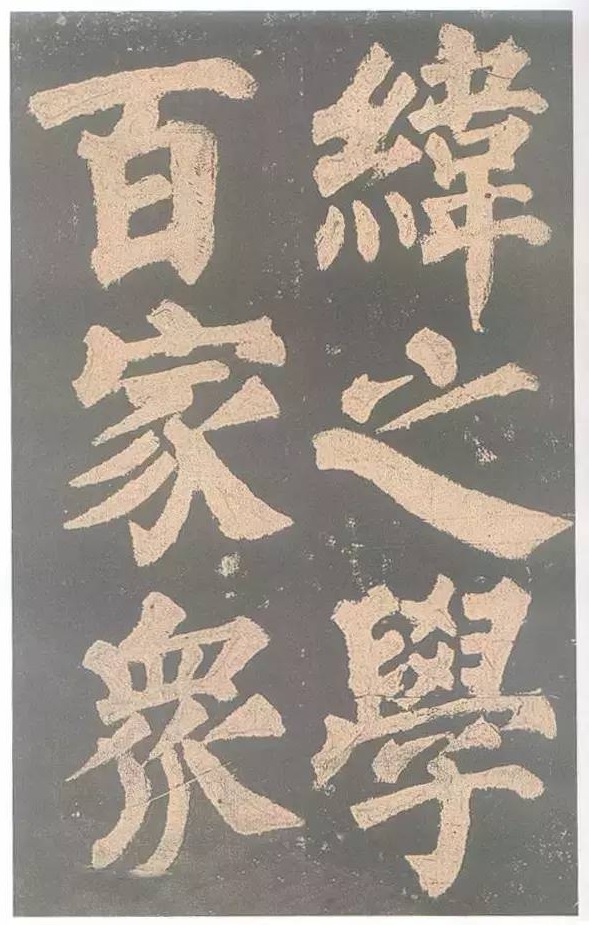 緯之學
百家衆